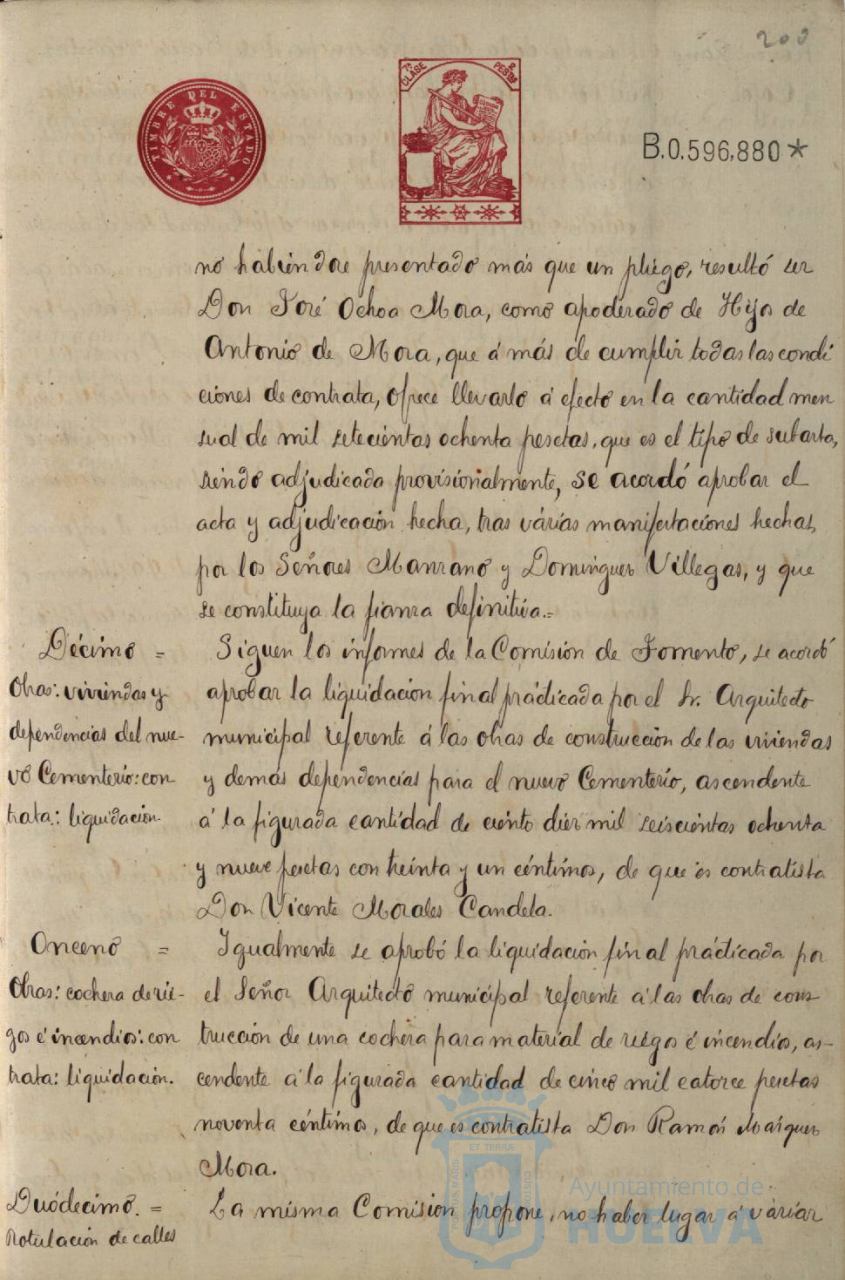 200
TIMBRE DEL ESTADO
7ª CLASE
2 PESTAS
B.0,596,880*
no habiéndose presentado más que un pliego, resultó ser
Don José Ochoa Mora, como apoderado de Hijo de
Antonio de Mora, que á más de cumplir todas las condi
ciones de contrata, ofrece llevarlo á efecto en la cantidad men
sual de mil setecientas ochenta pesetas, que es el tipo de subasta,
siendo adjudicada provisionalmente, se acordó aprobar el
acta y adjudicación hecha, tras várias manifestaciones hechas,
por los Señores Manzano y Dominguez Villegas, y que
se constituya la fianza definitiva.=
Décimo =
Obras: viviendas y
dependencias del nue-
vo Cementerio: con
trata: liquidación.
Siguen los informes de la Comisión de Fomento, se acordó
aprobar la liquidación final prácticada por el Sr. Arquitecto
municipal referente á las obras de construcción de las viviendas
y demás dependencias para el nuevo Cementerio, ascendente
á la figurada cantidad de ciento diez mil seiscientas ochenta
y nueve pesetas con treinta y un céntimos, de que es contratista
Don Vicente Morales Candela.
Onceno =
Obras: cochera de rie-
gos é incendios: con
trata: liquidación.
Igualmente se aprobó la liquidación final prácticada por
el Señor Arquitecto municipal referente á las obras de cons
trucción de una cochera para material de riegos é incendios, as-
cendente á la figurada cantidad de cinco mil catorce pesetas
noventa céntimos, de que es contratista Don Ramón Márquez
Mora.
Duódecimo. =
Rotulación de calles
La misma Comisión propone, no haber lugar á váriar
Ayuntamiento de
HUELVA